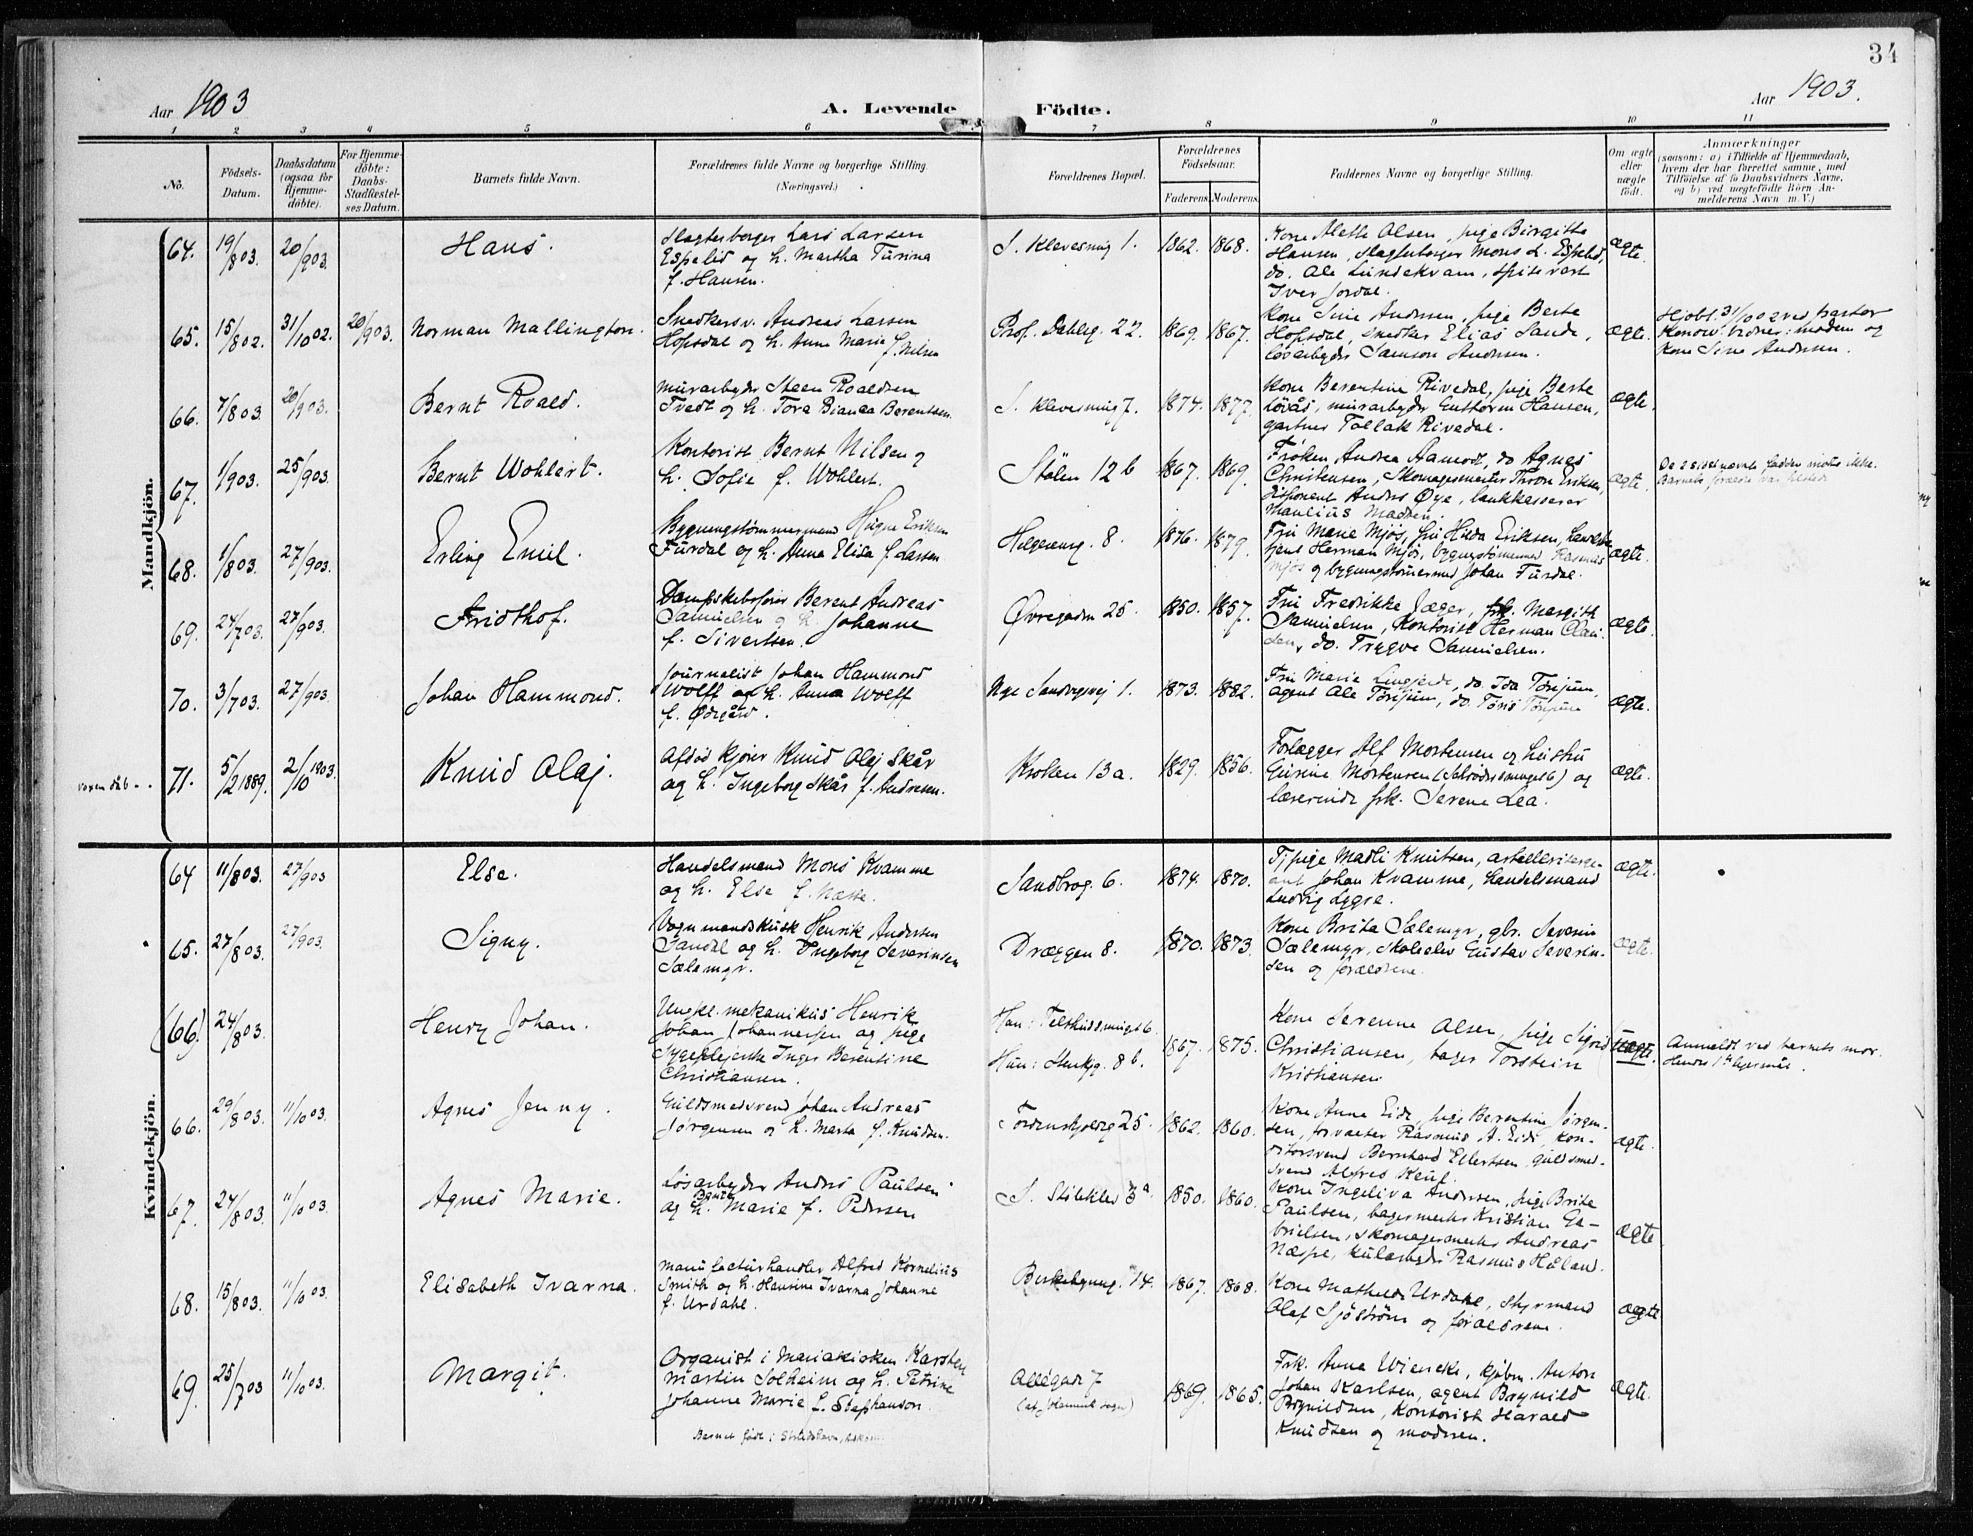 34
Aar 1903
A. Levende Födte.
Aar 1903.
1 2 3 4 5 6 7 8 9 10 11
No.
Födsels-
Datum.
Daabsdatum
(ogsaa for
Hjemme-
döbte).
For Hjemme-
döbte:
Daabs-
Stadfæstel-
ses Datum.
Barnets fulde Navn.
Forældrenes fulde Navne og borgerlige Stilling.
(Næringsvei.)
Forældrenes Bopæl.
Forældrenes
Födselsaar.
Faderens. Moderens.
Faddernes Navne og borgerlige Stilling.
Om ægte
eller
uægte
födt.
Anmærkninger
(saasom: a) i Tilfælde af Hjemmedaab,
hvem der har forrettet samme, med
Tilföielse af to Daabsvidners Navne,
og b) ved uægtefödte Börn An-
melderens Navn m. V.)
Mandkjön.
64. 19/8 03. 20/9 03. Hans.
Slagterborger Lars Larsen
Espelid og h. Martha Turina
f. Hansen.
S. Klevesmug 1. 1862. 1868.
Kone Alette Olsen, pige Birgitte
Hansen, Slagterborger Mons L. Espelid,
do. Ole Lundekvam, spisevært
Iver Jordal.
ægte.
65. 15/8 02. 31/10 02. 20/9 03. Norman Mallington.
Snedkersv. Andreas Larsen
Hopsdal og h. Anne Marie f. Nilsen
Prof. Dahlsg. 22. 1869. 1867.
Kone Sine Andersen, pige Berte
Hopsdal, snedker Elias Sande,
løsarbeyder Samson Andersen.
ægte.
Hjdbt. 31/10 02 ved pastor
Konow. Vidner: moderen og
Kone Sine Andersen.
66. 7/8 03. 20/9 03. Bernt Roald.
Murarbeyder Steen Roaldsen
Tvedt og h. Tora Bianca Berentsen.
S. Klevesmug 7. 1874. 1877.
Kone Berentine Rivedal, pige Berte
Løvås, murarbeyder Guttorm Hansen,
gartner Tollak Rivedal.
ægte.
67. 1/9 03. 25/9 03. Bernt Wohlert.
Kontorist Bernt Nilsen og
h. Sofie f. Wohlert.
Stølen 12 b 1867. 1869.
Frøken Andrea Aamodt, do Agnes
Christensen, Skomagermester Thron Eriksen,
Disponent Anders Øye, bankkasserer
Manlius Madsen.
ægte.
De 2 sidst nævnte faddere møtte ikke.
Barnets forældre var tilstede
68. 1/8 03. 27/9 03. Erling Emil.
Bygningstømmermand Mogne Eriksen
Furdal og h. Anna Elisa f. Larsen
Helgesensg. 8. 1876. 1879.
Fru Marie Mjøs, fru Hilda Eriksen,
Herman Mjøs, bygningstømmermand Rasmus
Mjøs og bygningstømmermd Johan Furdal.
ægte.
69. 24/7 03. 27/9 03. Fridthof.
Dampskibsfører Berent Andreas
Samuelsen og h. Johanne
f. Sivertsen.
Øvregaden 25. 1850. 1857.
Fru Fredrikke Jæger, frk. Margith
Samuelsen, Kontorist Herman Clau-
sen, do. Trygve Samuelsen.
ægte.
70. 3/7 03. 27/9 03. Johan Hammond.
Journalist Johan Hammond
Wolff og h. Anna Wolff
f. Ødegård.
Nye Sandviksvej 1. 1873. 1882.
Fru Marie Lingjerde, do. Ida Torjum,
agent Ole Torjum, do.
ægte.
voxen dåb - .
71. 5/2 1889. 2/10 1903. Knud Olaj.
Afdød kjører Knud Olej Skår
og h. Ingeborg Skår f. Andresen.
Kroken 13 a. 1829. 1856.
Forlægger Alf Mortensen og hustru
Gurine Mortensen (Schrødersmuget 6) og
lærerinde frk. Serene Lea.
ægte.
Kvindekjön.
64 11/8 03. 27/9 03 Else.
Handelsmand Mons Kvamme
og h. Else f. Næsse.
Sandbrog. 6. 1874. 1870.
Tj.pige Madli Knutsen,
Johan Kvamme, handelsmand
Ludvig Lygre.
ægte.
65. 27/8 03. 27/9 03. Signy.
Vognmandskusk Henrik Andersen
Sandal og h. Ingeborg Severinsen
Sælemyr.
Dræggen 8. 1870. 1873.
Kone Brita Sælemyr, gbr. Severin
Sælemyr, skoleelev Gustav Severin-
sen og forældrene.
ægte.
(66) 24/8 03. Henry Johan.
Ungk. mekanikus Henrik
Johan Johannessen og pige
Sygeplejerske Inger Berentine
Christiansen.
Han: Telthussmuget 6.
Hun: Stenkjg. 8 b.
1867. 1875.
Kone Serenne Olsen, pige Sigrid
Christiansen, bager Torstein
Kristiansen
uægte.
Anmeldt ved barnets mor.
Hendes 1ste lejermål.
66. 29/8 03. 11/10 03. Agnes Jenny.
Guldsmedsvend Johan Andreas
Jørgensen og h. Marta f. Knudsen.
Tordenskjoldsg 25. 1862. 1860.
Kone Anne Eide, pige Berentine Jørgen-
sen, forvalter Rasmus A. Eide, kon-
ditorsvend Bernhard Ellertsen, guldsmed-
svend Alfred Keuf.
ægte.
67. 24/8 03. 11/10 03. Agnes Marie.
Løsarbeyder Anders Paulsen
og h. Marie f. Pedersen
S. Støleklev 3 a. 1850. 1860.
Kone Ingeliva Andersen, pige Brite
Paulsen, bagermester Kristian Ga-
brielsen, skomagermester Andreas
Næspe, kularbeyder Rasmus Høland.
ægte
68. 15/8 03. 11/10 03. Elisabeth Ivarna.
Manufacturhandler Alfred Kornelius
Smith og h. Hansine Ivarna Johanne
f. Urdahl.
14. 1867. 1868.
Kone Mathilde Urdahl, styrmand
Olaf Sjöström og forældrene.
ægte
69. 25/7 03 11/10 03. Margit.
Organist i Mariakirken Karsten
Martin Solheim og h. Petrine
Johanne Marie f. Stephanson.
Barnet født i
Allégade 7
(at Johannes sogn)
1869. 1865.
Frk. Anna Wiencke, kjøbm. Anton
Johan Karlsen, agent Brynild
Brynildsen, Kontorist Harald
Knudsen og moderen.
ægte.